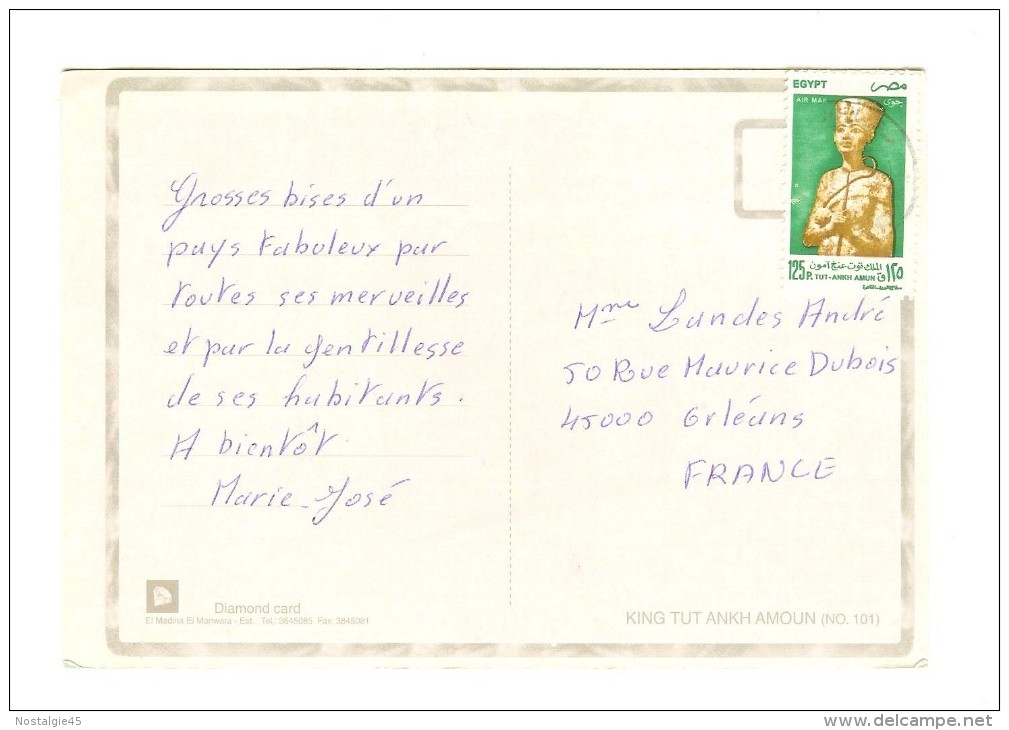 Grosses bises d'un
pays fabuleux par
toutes ses merveilles
et par la gentillesse
de ses habitants.
A bientôt
Marie-José
EGYPT مصر
AIR MAIL جوى
125 P. الملك توت عنخ آمون ١٢٥ ق
TUT-ANKH AMUN
Mme Landes André
50 Rue Maurice Dubois
45000 Orléans
FRANCE
Diamond card
El Madina El Manwara - Est. Tel.: 3645085 Fax: 3845981
KING TUT ANKH AMOUN (NO. 101)
Nostalgie45
www.delcampe.net